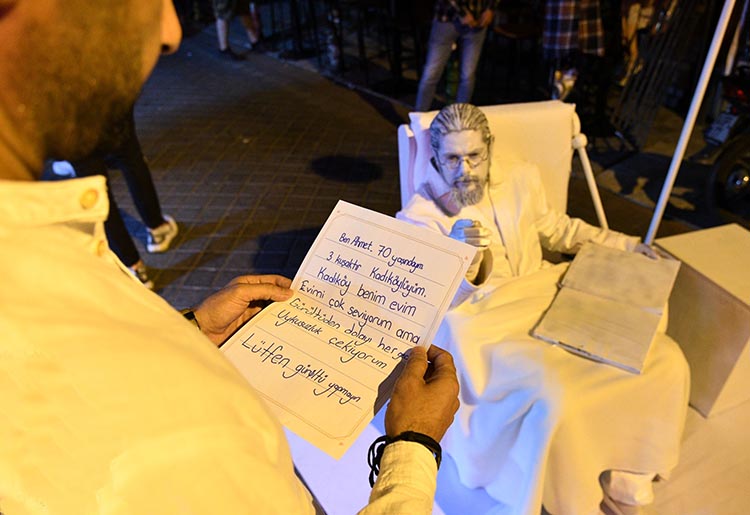 Ben Ahmet. 70 yaşındayım
3 kuşaktır Kadıköylüyüm.
Kadıköy benim evim
Evimi çok seviyorum ama
Gürültüden dolayı her ge
Uykusuzluk çekiyorum
Lütfen, gürültü yapmayın